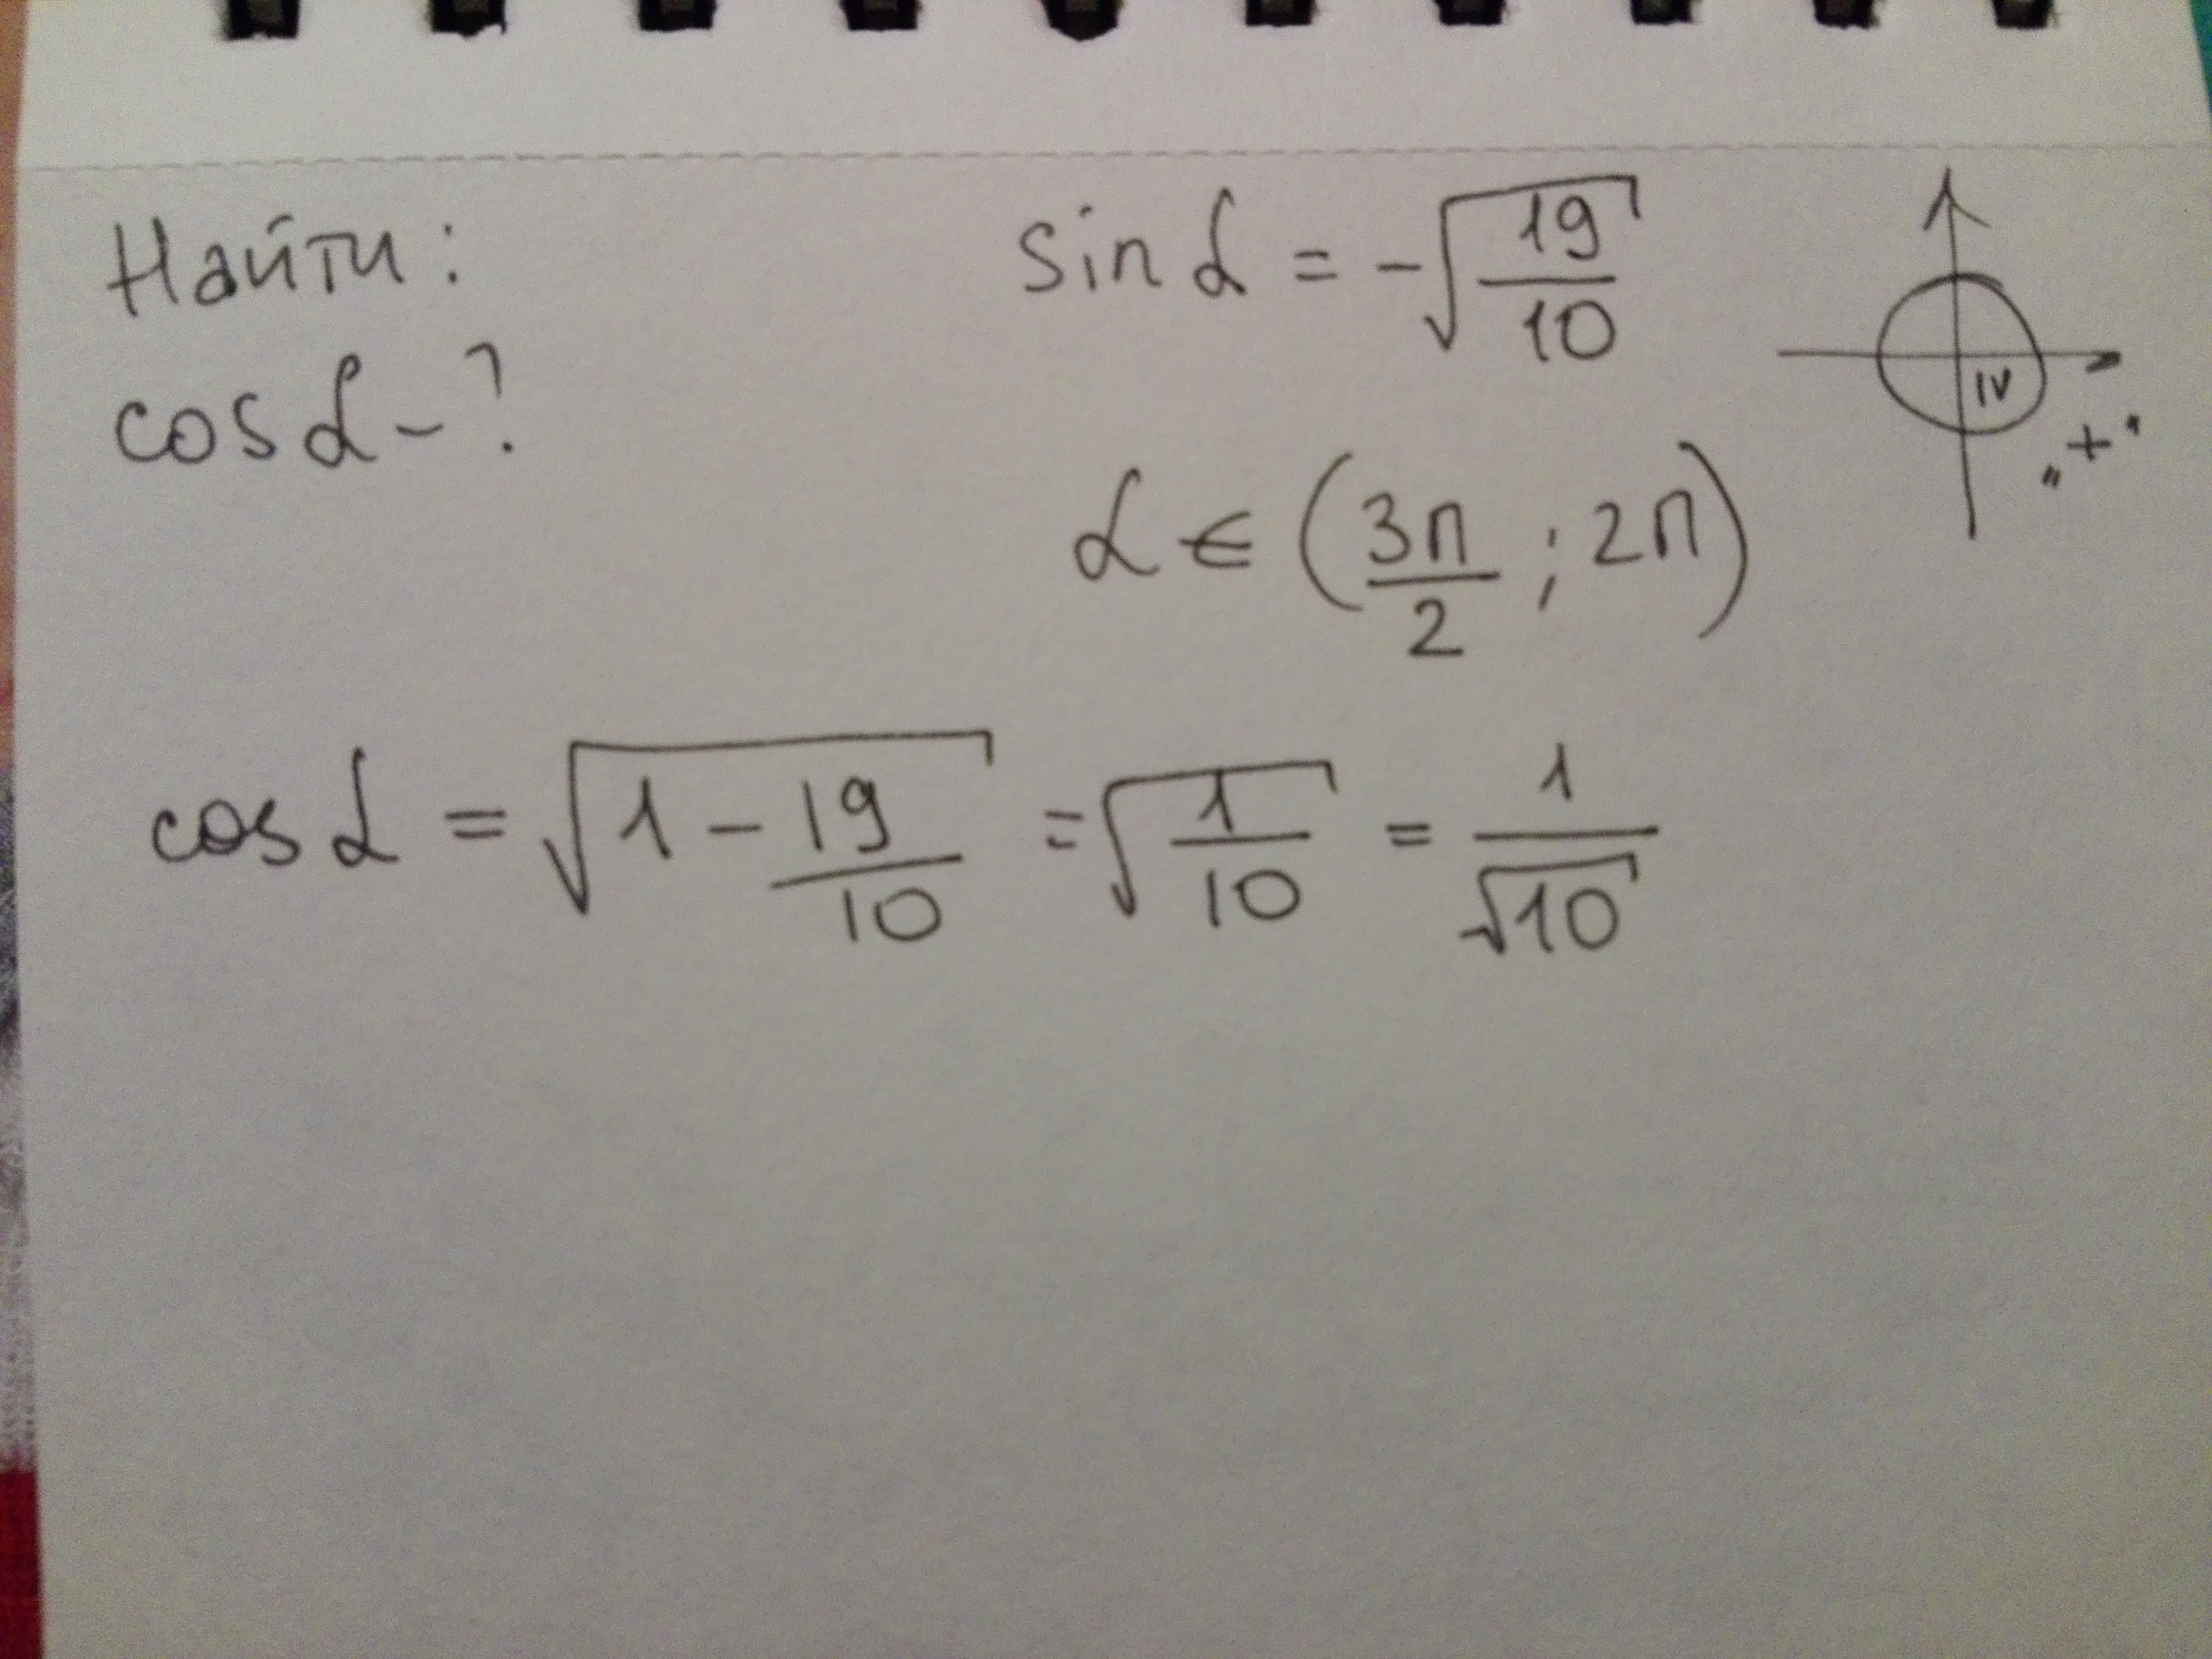 Найти: sin α = -√(19/10)
cos α - ?
IV
„+“
α ∈ (3π/2 ; 2π)
cos α = √(1 - 19/10) = √(1/10) = 1/√10